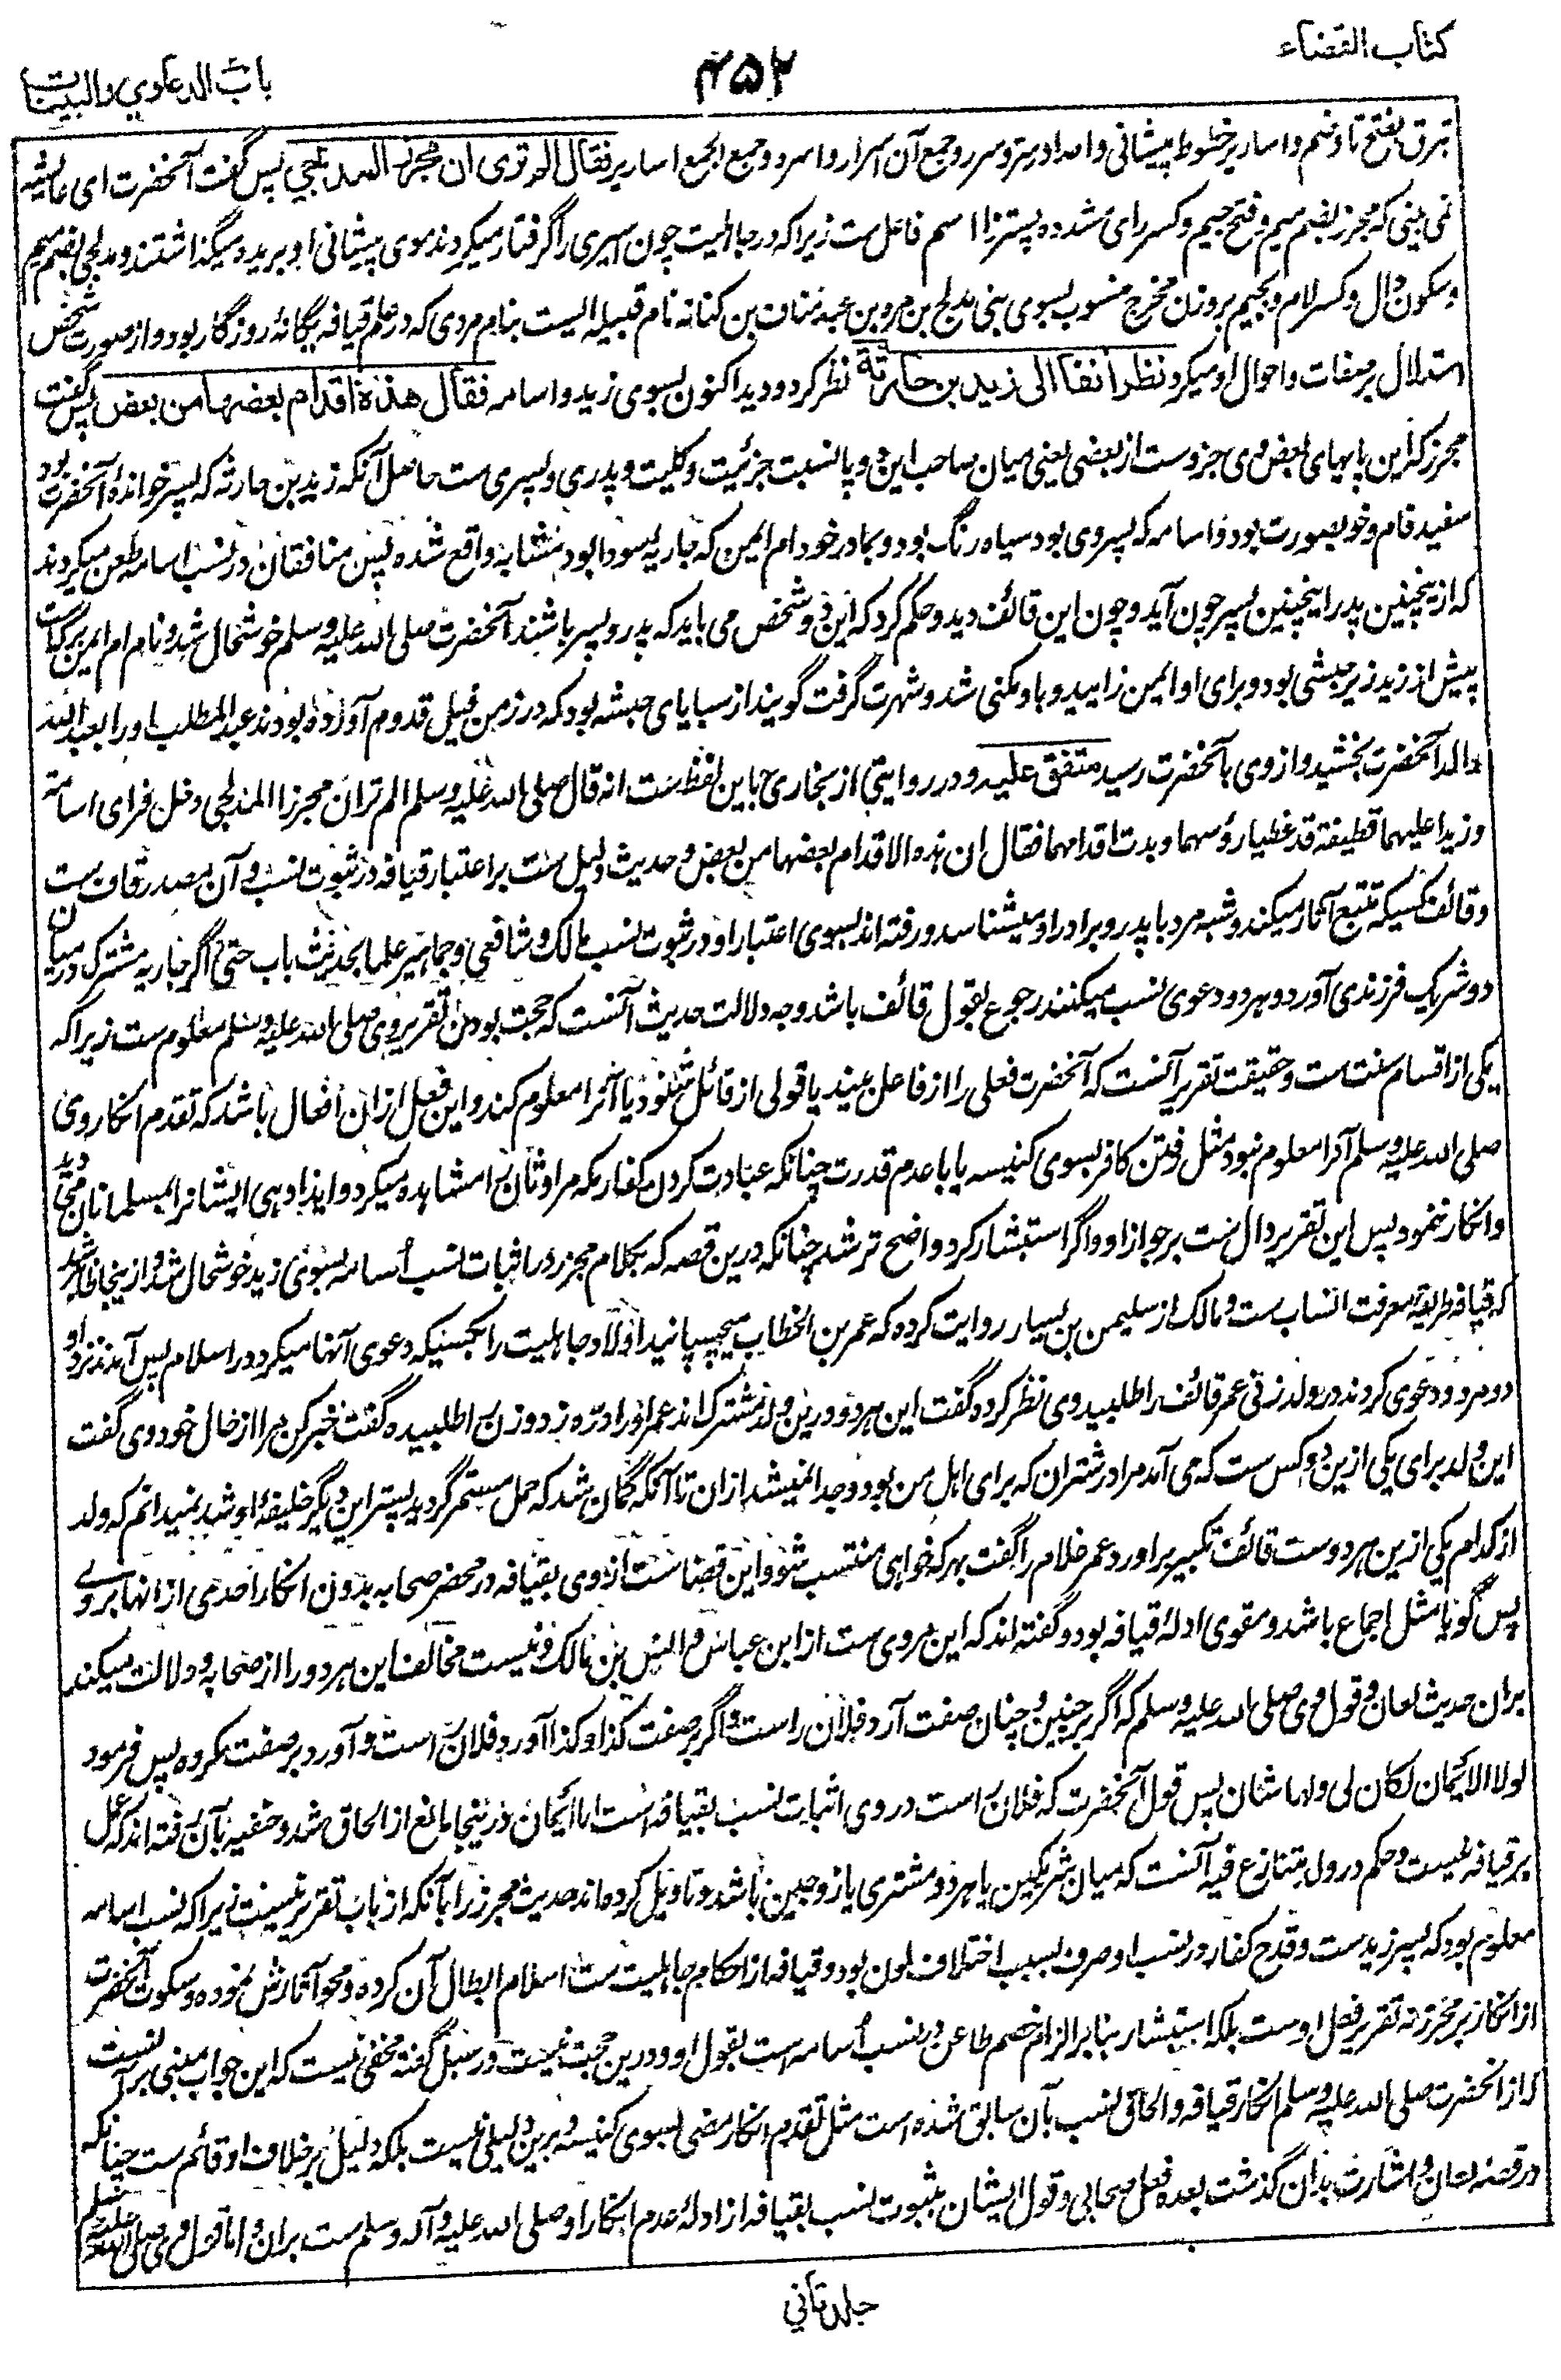 کتاب القضاء
۴۵۲
باب الدعاوي والبينات
تبرق بفتح تا و ضم و اساریر خطوط پیشانی واحد او سرّ و سرر و جمع آن اسرار و اسره و جمع الجمع اساریر فقال الم تری ان مجزز المدلجي پس گفت آنحضرت ای عائشه
نمی بینی که مجزز بضم میم و فتح جیم و کسر زای مشدده پستر زا اسم فاعل ست زیرا که در جاهلیت چون اسیری را گرفتار میکردند موی پیشانی او بریده میگذاشتند و مدلجی بضم میم
و سکون دال و کسر لام و بجیم بر وزن مخرج منسوب بسوی بنی مدلج بن مره بن عبد مناف بن کنانه نام قبیله ایست بنام مردی که در علم قیافه یگانه روزگار بود و از صورت شخص
استدلال بر صفات و احوال او میکرد نظر انفا الی زید بن حارثة نظر کرد و دید اکنون بسوی زید و اسامه فقال هذه اقدام بعضها من بعض پس گفت
مجزز که این پایهای بعض وی جزوست از بعضی یعنی میان صاحب این دو پا نسبت جزئیت و کلیت و پدری و پسری ست حاصل آنکه زید بن حارثه که پسر خوانده آنحضرت بود
سفید فام و خوبصورت بود و اسامه که پسر وی بود سیاه رنگ بود و بمادر خود ام ایمن که جاریه سودا بود متشابه واقع شده پس منافقان در نسب اسامه طعن میکردند
که از اینچنین پدر اینچنین پسر چون آید و چون این قائف دید و حکم کرد که این دو شخص می باید که پدر و پسر باشند آنحضرت صلی الله علیه وسلم خوشحال شد و نام ام ایمن برکت ست
پیش از زید زیر حبشی بود و برای او ایمن زایید و باو مکنی شد و شهرت گرفت گویند از سبایای حبشه بود که در زمن فیل قدوم آورده بودند عبد المطلب او را بعبد الله
والد آنحضرت بخشید و از وی بآنحضرت رسید متفق علیه و در روایتی از بخاری باین لفظ ست انه قال صلی الله علیه وسلم الم تر ان مجززا المدلجی دخل فرای اسامة
و زیدا علیهما قطیفة قد غطیا رؤسهما و بدت اقدامهما فقال ان هذه الاقدام بعضها من بعض و حدیث دلیل ست بر اعتبار قیافه در ثبوت نسب و آن مصدر قاف ست
و قائف کسیکه تتبع آثار میکند و شبه مرد با پدر و برادر او میشناسد و رفته اند بسوی اعتبار او در ثبوت نسب مالک و شافعی و جماهیر علما بحدیث باب حتی اگر جاریه مشترک در میان
دو شریک فرزندی آورد و هر دو دعوی نسب میکنند رجوع بقول قائف باشد وجه دلالت حدیث آنست که حجت بودن تقریر وی صلی الله علیه وسلم معلوم ست زیرا که
یکی از اقسام سنت ست و حقیقت تقریر آنست که آنحضرت فعلی را از فاعلی بیند یا قولی از قائل شنود یا آنرا معلوم کند و این فعل از ان افعال باشد که تقدم انکار وی
صلی الله علیه وسلم آنرا معلوم نبود مثل رفتن کافر بسوی کنیسه یا با عدم قدرت چنانکه عبادت کردن کفار مکه مر اوثان را مشاهده میکرد و ایذا دهی ایشانرا بمسلمانان می دید
و انکار ننمود پس این تقریر دال ست بر جواز او و اگر استبشار کرد واضح تر شد چنانکه درین قصه که بکلام مجزز در اثبات نسب اسامه بسوی زید خوشحال شد و از ینجا ظاهر شد
که قیافه طریقه معرفت انساب ست و مالک از سلیمن بن یسار روایت کرده که عمر بن الخطاب میچسپانید اولاد جاهلیت را بکسیکه دعوی آنها میکرد در اسلام پس آمدند نزد او
دو مرد و دعوی کردند در ولد زنی عمر قائف را طلبید وی نظر کرده گفت این هر دو درین ولد مشترک اند عمر او را دره زد و زن را طلبیده گفت خبر کن مرا از حال خود وی گفت
این ولد برای یکی ازین دو کس ست که می آمد مرا در شتران که برای اهل من بود و جدا نمیشد ازان تا آنکه گمان شد که حمل مستمر گردید پستر این دیگر خلیفه او شد نمیدانم که ولد
از کدام یکی ازین هر دوست قائف تکبیر برآورد و عمر غلام را گفت بهر که خواهی منتسب شو و این قضا ست از وی بقیافه در محضر صحابه بدون انکار احدی از انها بروی
پس گویا مثل اجماع باشد و مقوی ادله قیافه بود و گفته اند که این مروی ست از ابن عباس و انس بن مالک و نیست مخالف این هر دو را از صحابه و دلالت میکند
بران حدیث لعان و قول وی صلی الله علیه وسلم که اگر چنین و چنان صفت آرد فلان راست و اگر بر صفت کذا و کذا آورد فلان راست و آورد بر صفت مکروه پس فرمود
لولا الایمان لکان لی ولها شان پس قول آنحضرت که فلان راست در وی اثبات نسب بقیافه است اما ایمان در ینجا مانع از الحاق شد و حنفیه بآن رفته اند که عمل
بر قیافه نیست و حکم در ولد متنازع فیه آنست که میان شریکین یا هر دو مشتری یا زوجین باشد و تاویل کرده اند حدیث مجزز را بآنکه از باب تقریر نیست زیرا که نسب اسامه
معلوم بود که پسر زید ست و قدح کفار در نسب او صرف بسبب اختلاف لون بود و قیافه از احکام جاهلیت ست اسلام ابطال آن کرده و محو آثارش نموده و سکوت آنحضرت
از انکار بر مجزز نه تقریر فعل اوست بلکه استبشار بنا بر الزام خصم طاعن در نسب اسامه است بقول او و درین حجت نیست و در سبل گفته مخفی نیست که این جواب مبنی بر آنست
که از آنحضرت صلی الله علیه وسلم انکار قیافه و الحاق نسب بآن سابق شده است مثل تقدم انکار مضی بسوی کنیسه و برین دلیلی نیست بلکه دلیل بر خلاف او قائم ست چنانکه
در قصه لعان و اشارت بدان گذشت بعده فعل صحابی و قول ایشان بثبوت نسب بقیافه از ادله عدم انکار او صلی الله علیه وآله وسلم ست بران و اما قول وی صلی الله علیه وسلم
جلد ثانی